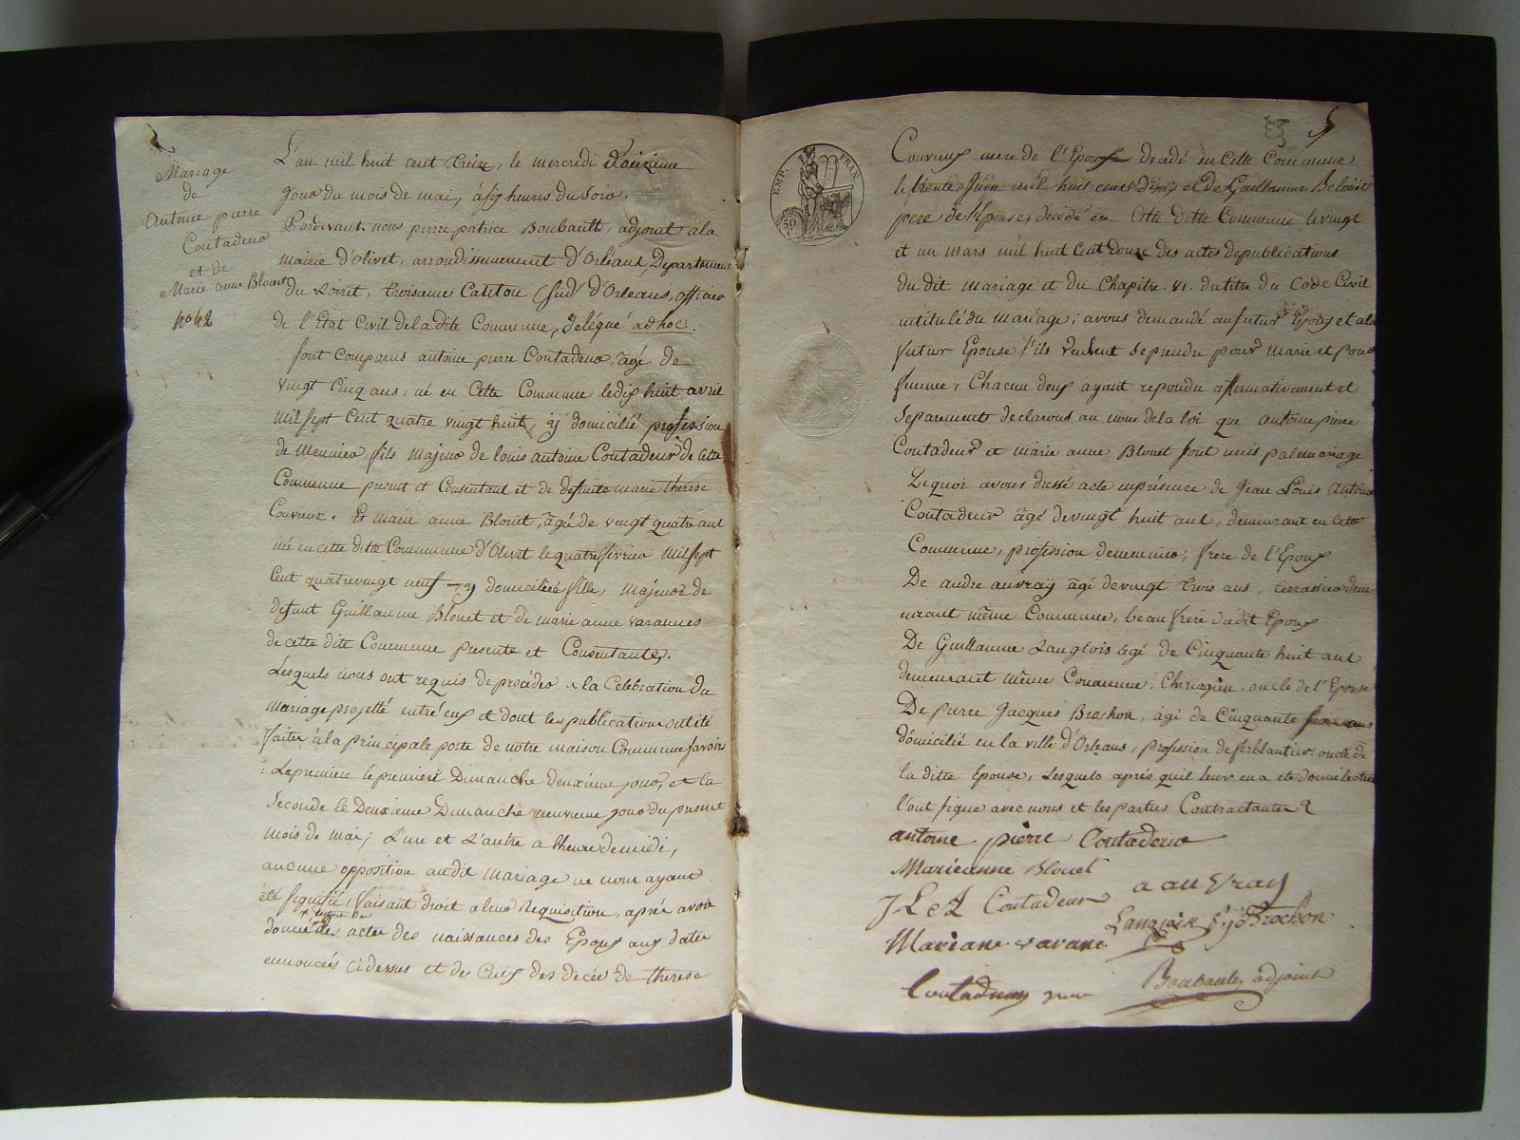 Mariage
de
Antoine pierre
Coutadeur
et de
Marie anne Blouet
no 42
L'an mil huit cent treize, le mercredi douzieme
jour du mois de mai, à six heures du soir.
Pardevant nous pierre patrice Boubault, adjoint a la
mairie d'Olivet, arrondissement d'Orleans, Departement
du Loiret, troisieme Canton (sud) d'Orleans, officier
de l'Etat Civil de la dite Commune, délégué ad hoc.
sont comparus antoine pierre Coutadeur, agé de
vingt cinq ans, né en Cette Commune le dix huit avril
mil sept Cent quatre vingt huit, y domicilié profession
de Meunier fils majeur de louis antoine Coutadeur de Cette
Commune present et Consentant et de defunte marie therese
Couvreux. Et marie anne Blouet, âgé de vingt quatre ans
née en cette ditte Commune d'Olivet le quatre février mil sept
Cent quatrevingt neuf y domiciliée fille, majeure de
defunt Guillaume Blouet et de marie anne varannes
de cette dite Commune presente et Consentante.
Lesquels nous ont requis de proceder a la Celebration du
mariage projetté entré eux et dont les publications ont été
faites a la principale porte de notre maison Commune savoir
La premiere le premiere Dimanche deuxieme jour, et la
seconde le Deuxieme Dimanche neuvieme jour du present
mois de mai, L'une et L'autre a l'heure de midi,
aucune opposition audit mariage ne nous ayant
été signifié, faisant droit a leur Requisition, aprés avoir
donné lecture des actes des naissances des Epoux aux dates
enoncées ci dessus et de Ceux des decée de therese
EMP. FRAN.
Couvreux mere de l'Epoux decédé en Cette Commune
le trente Juin mil huit cent dix et de Guillaume Blouet
pere de l'Epouse decedé en Cette ditte Commune le vingt
et un mars mil huit Cent douze des actes de publications
du dit mariage et du Chapitre VI. du titre du Code Civil
intitulé du mariage; avons demandé au futur Epoux et a la
futur Epouse s'ils veulent se prendre pour Marie et pour
femme, Chacun d'eux ayant repondu affirmativement et
Separement declarons au nom de la loi que antoine pierre
Coutadeur et marie anne Blouet sont unis par le mariage
De quoi avons dressé acte en présence de Jean Louis Antoine
Coutadeur âgé de vingt huit ans, demeurant en Cette
Commune, profession de meunier; frere de l'Epoux
De andre auvray âgé de vingt trois ans, terrassier demeu
meurant même Commune, beau frere dudit Epoux
De Guillaume Langlois agé de Cinquante huit ans
demeurant même Commune, Chirurgien oncle de l'Epouse
De pierre Jacques Brochon, agé de Cinquante
domicilié en la ville d'Orleans, profession de ferblantier oncle de
la ditte Epouse, Lesquels aprés quil leur en a eté donné lecture
l'ont signe avec nous et les parties Contractantes
antoine pierre Coutadeur
Marieanne Blouet
J L A Coutadeur a auvray
Langlois P. J. Brochon
Mariane varane
Coutadeur pere Boubault, adjoint